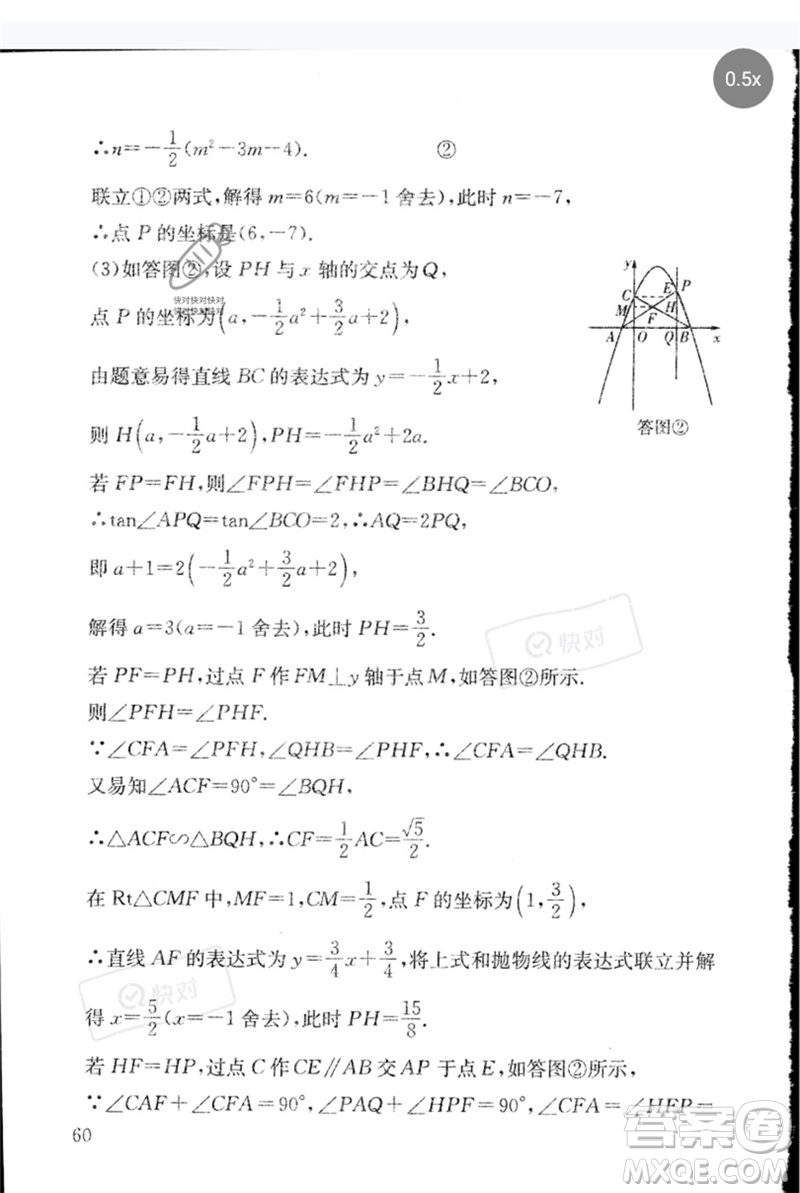 0.5x
∴n=-\frac{1}{2}(m²-3m-4). ②
联立①②两式,解得 m=6(m=-1 舍去),此时 n=-7,
∴点 P 的坐标是(6,-7).
(3)如答图②,设 PH 与 x 轴的交点为 Q,
快对快对快对
快对快对快对
点 P 的坐标为(a,-\frac{1}{2}a²+\frac{3}{2}a+2),
由题意易得直线 BC 的表达式为 y=-\frac{1}{2}x+2,
则 H(a,-\frac{1}{2}a+2),PH=-\frac{1}{2}a²+2a.
y
C E P
M H
F
A O Q B x
答图②
若 FP=FH,则∠FPH=∠FHP=∠BHQ=∠BCO,
∴tan∠APQ=tan∠BCO=2,∴AQ=2PQ,
即 a+1=2(-\frac{1}{2}a²+\frac{3}{2}a+2),
解得 a=3(a=-1 舍去),此时 PH=\frac{3}{2}.
快对
若 PF=PH,过点 F 作 FM⊥y 轴于点 M,如答图②所示.
则∠PFH=∠PHF.
∵∠CFA=∠PFH,∠QHB=∠PHF,∴∠CFA=∠QHB.
又易知∠ACF=90°=∠BQH,
∴△ACF∽△BQH,∴CF=\frac{1}{2}AC=\frac{√5}{2}.
在 Rt△CMF 中,MF=1,CM=\frac{1}{2},点 F 的坐标为(1,\frac{3}{2}),
∴直线 AF 的表达式为 y=\frac{3}{4}x+\frac{3}{4},将上式和抛物线的表达式联立并解
快对
得 x=\frac{5}{2}(x=-1 舍去),此时 PH=\frac{15}{8}.
若 HF=HP,过点 C 作 CE∥AB 交 AP 于点 E,如答图②所示,
∵∠CAF+∠CFA=90°,∠PAQ+∠HPF=90°,∠CFA=∠HFP=
60
答案卷
MXQE.COM